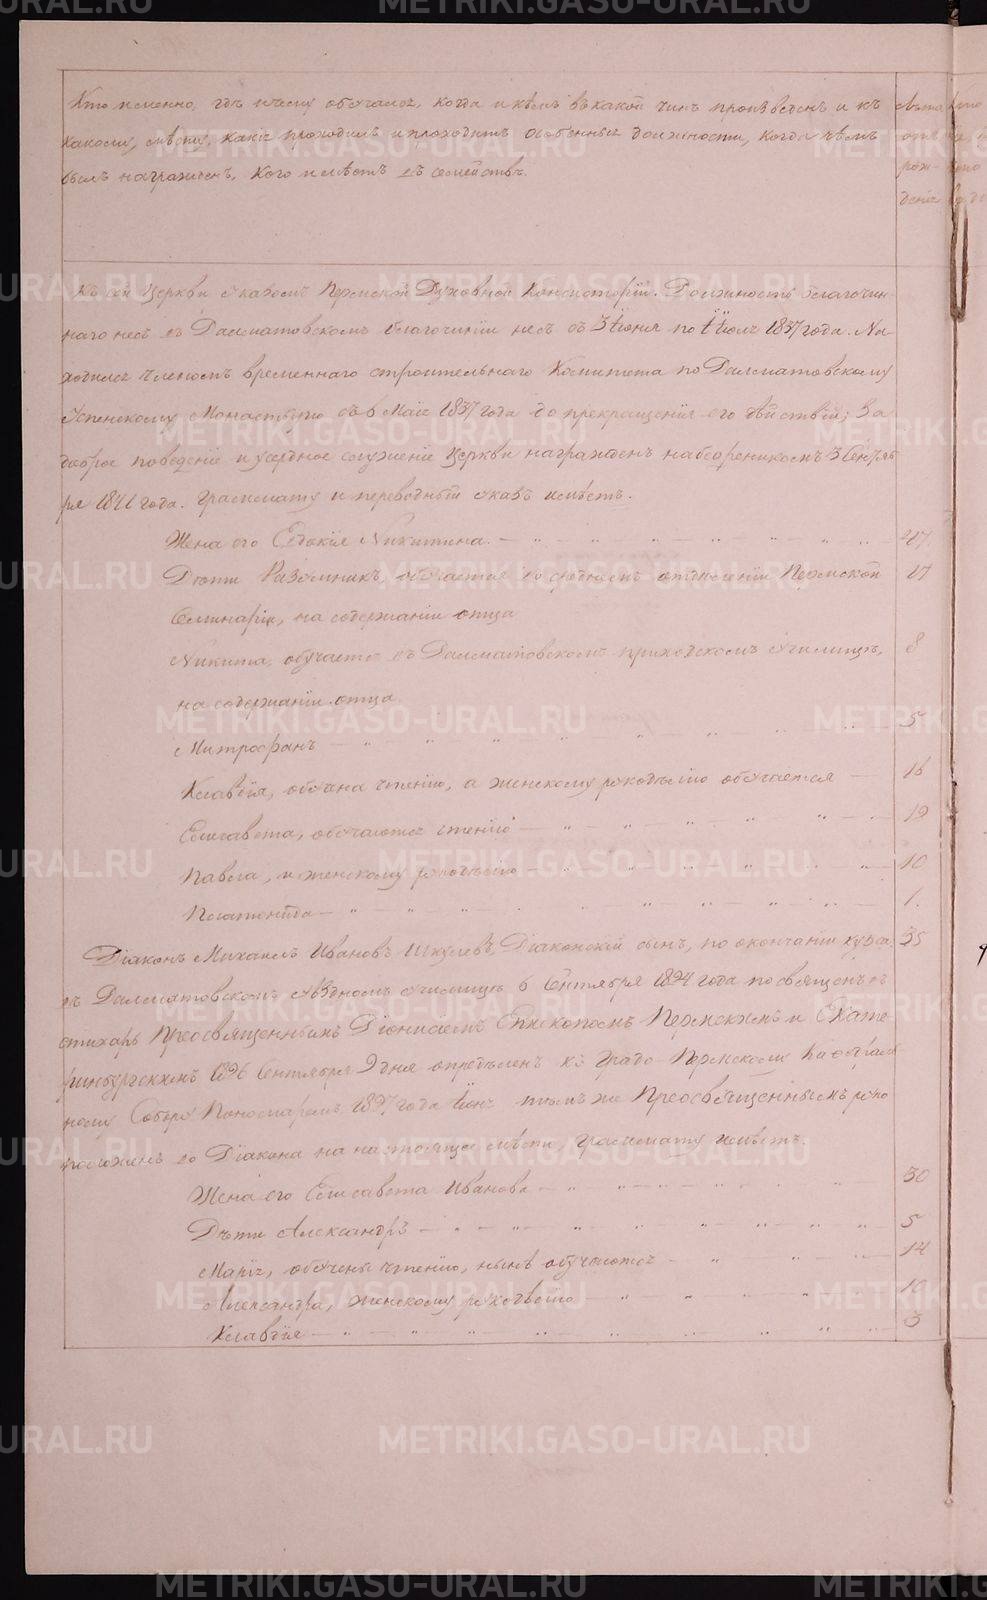 Кто именно, гдѣ и чему обучался, когда и кѣмъ въ какой чинъ произведенъ и къ
какому мѣсту, какіе проходилъ и проходитъ особенныя должности, когда чѣмъ
былъ награжденъ, кого имѣетъ въ семействѣ.
Лѣта
отъ
рож-
денія
Къ сей Церкви указомъ Пермской Духовной Консисторіи. Должность благочин-
наго несъ въ Далматовскомъ благочиніи несъ съ 3 Іюня по Іюль 1837 года. На-
ходился членомъ временнаго строительнаго Комитета по Далматовскому
Успенскому Монастырю съ 6 Маія 1837 года до прекращенія его дѣйствій; За
доброе поведеніе и усердное служеніе Церкви награжденъ набедренникомъ 3 Сентяб
ря 1841 года. Грамматту и переводный указъ имѣетъ.
Жена его Евдокія Никитина — 47
Дѣти Разумникъ, обучается въ среднемъ отдѣленіи Пермской 17
Семинаріи, на содержаніи отца
Никита, обучается въ Далматовскомъ приходскомъ Училищѣ, 8
на содержаніи отца
Митрофанъ — 5
Клавдія, обучена чтенію, а женскому рукодѣлію обучается — 16
Елисавета, обучаются чтенію — 12
Павла, и женскому рукодѣлію — 10
Платонида — 1.
Діаконъ Михаилъ Ивановъ Шкулевъ, Діаконскій сынъ, по окончаніи курса 35
въ Далматовскомъ уѣздномъ училищѣ 6 Сентября 1824 года посвященъ въ
стихарь Преосвященнымъ Діонисіемъ Епископомъ Пермскимъ и Екате
ринбургскимъ 1826 Сентября 9 дня опредѣленъ къ Градо-Пермскому Каѳедраль
ному Собору Пономаремъ, года тѣмъ же Преосвященнымъ руко
положенъ во Діакона на настоящее мѣсто, грамматту имѣетъ.
Жена его Елисавета Иванова — 30
Дѣти Александръ — 5
Марія, обучены чтенію, нынѣ обучаются — 14
Александра, женскому рукодѣлію — 10
Клавдія — 3
METRIKI.GASO-URAL.RU